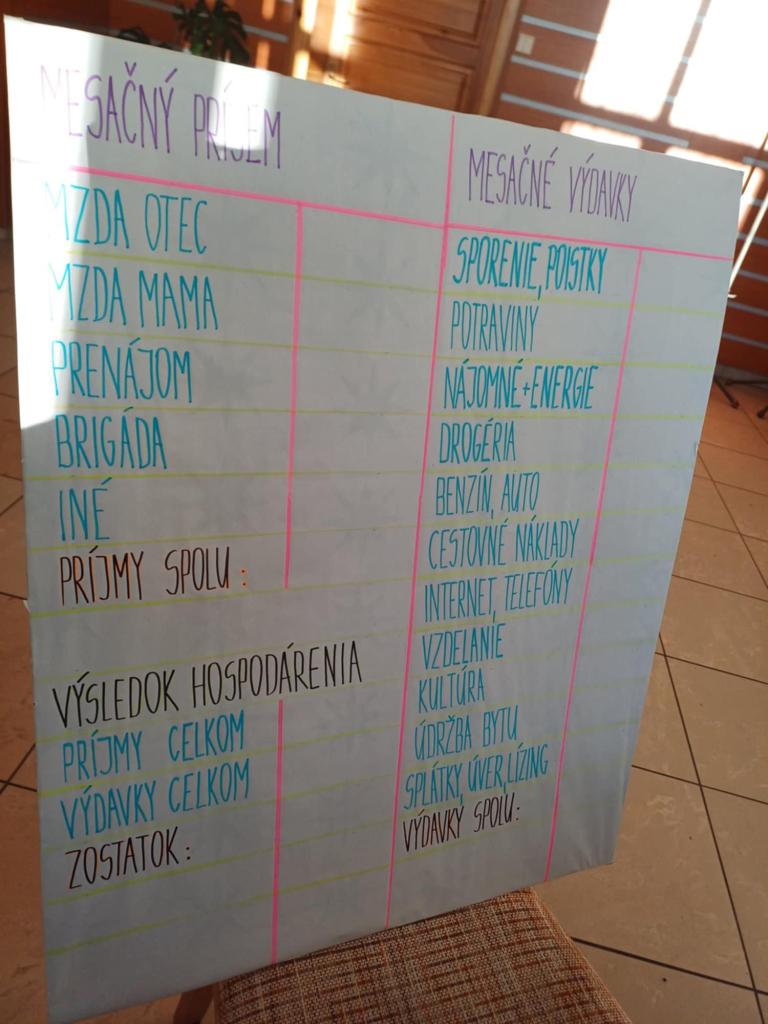 MESAČNÝ PRÍJEM
MZDA OTEC
MZDA MAMA
PRENÁJOM
BRIGÁDA
INÉ
PRÍJMY SPOLU:
VÝSLEDOK HOSPODÁRENIA
PRÍJMY CELKOM
VÝDAVKY CELKOM
ZOSTATOK:
MESAČNÉ VÝDAVKY
SPORENIE, POISTKY
POTRAVINY
NÁJOMNÉ+ENERGIE
DROGÉRIA
BENZÍN, AUTO
CESTOVNÉ NÁKLADY
INTERNET, TELEFÓNY
VZDELANIE
KULTÚRA
ÚDRŽBA BYTU
SPLÁTKY, ÚVER, LÍZING
VÝDAVKY SPOLU: